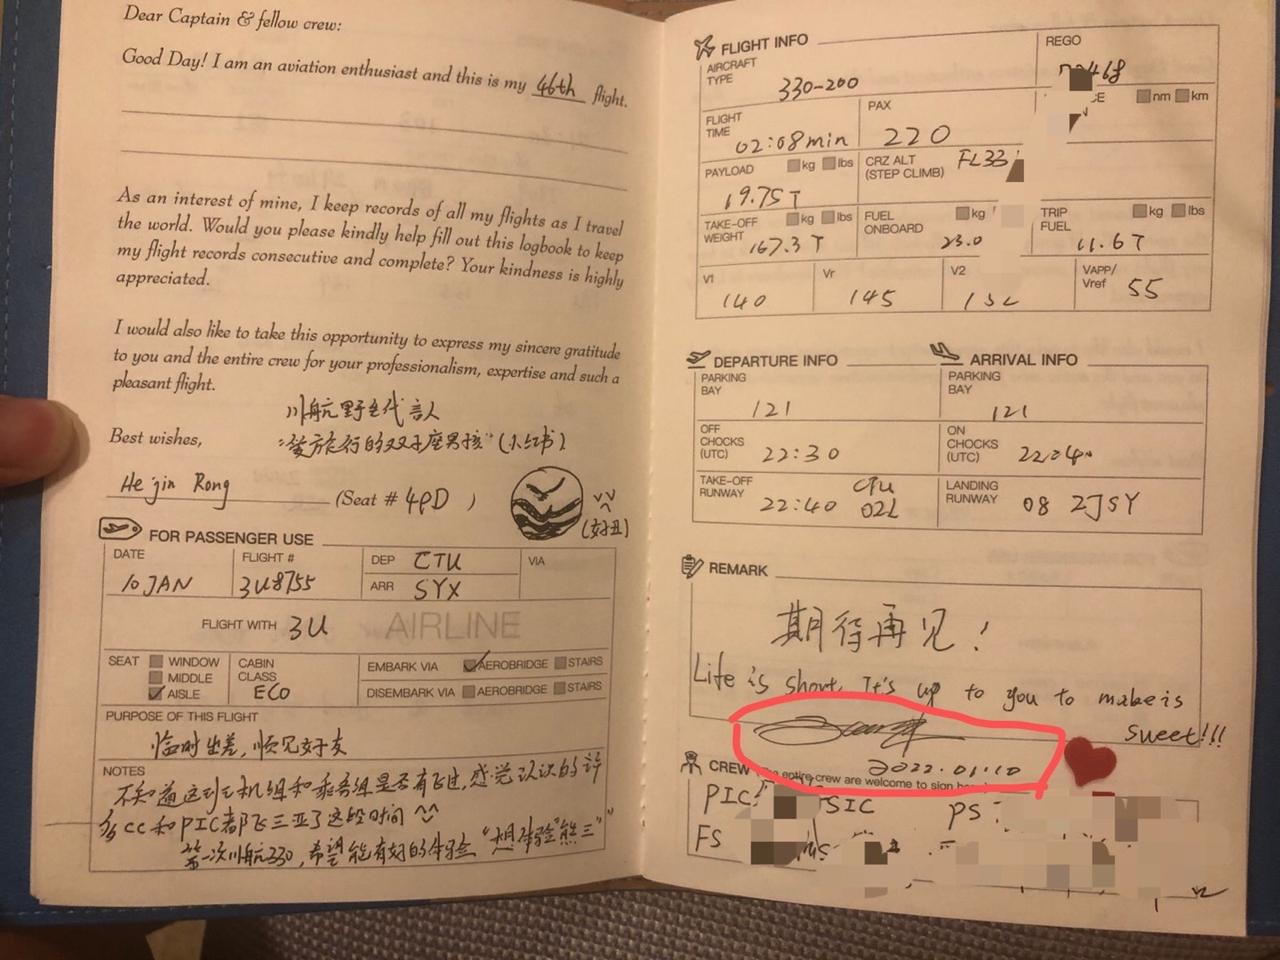 Dear Captain & fellow crew:
Good Day! I am an aviation enthusiast and this is my 46th flight.
As an interest of mine, I keep records of all my flights as I travel
the world. Would you please kindly help fill out this logbook to keep
my flight records consecutive and complete? Your kindness is highly
appreciated.
I would also like to take this opportunity to express my sincere gratitude
to you and the entire crew for your professionalism, expertise and such a
pleasant flight.
川航野生代言人
Best wishes,
旅行的双子座男孩"(小红书)
Hejin Rong (Seat # 49D )
(好丑)
FOR PASSENGER USE
DATE FLIGHT # DEP CTU VIA
10 JAN 3U8755 ARR SYX
FLIGHT WITH 3U AIRLINE
SEAT WINDOW CABIN EMBARK VIA AEROBRIDGE STAIRS
MIDDLE CLASS
AISLE ECO DISEMBARK VIA AEROBRIDGE STAIRS
PURPOSE OF THIS FLIGHT
临时出差,顺见好友
NOTES
不知道这到机组和乘务组是否有飞过,感觉认识的许
多CC和PIC都飞三亚了这段时间
第一次川航330,希望能有好的体验 "想体验"熊三"
FLIGHT INFO
AIRCRAFT TYPE 330-200
REGO
FLIGHT TIME 02:08min
PAX 220
nm km
PAYLOAD kg lbs 19.75T
CRZ ALT (STEP CLIMB) FL33
TAKE-OFF WEIGHT kg lbs 167.3T
FUEL ONBOARD kg 23.0
TRIP FUEL kg lbs 11.6T
V1 140
Vr 145
V2
VAPP/ Vref 55
DEPARTURE INFO
ARRIVAL INFO
PARKING BAY 121
PARKING BAY 121
OFF CHOCKS (UTC) 22:30
ON CHOCKS (UTC)
TAKE-OFF RUNWAY 22:40 CTU 02L
LANDING RUNWAY 08 ZJSY
REMARK
期待再见!
Life is short, It's up to you to make is
sweet!!!
2022.01.10
CREW (The entire crew are welcome to sign
PIC: SIC PS:
FS